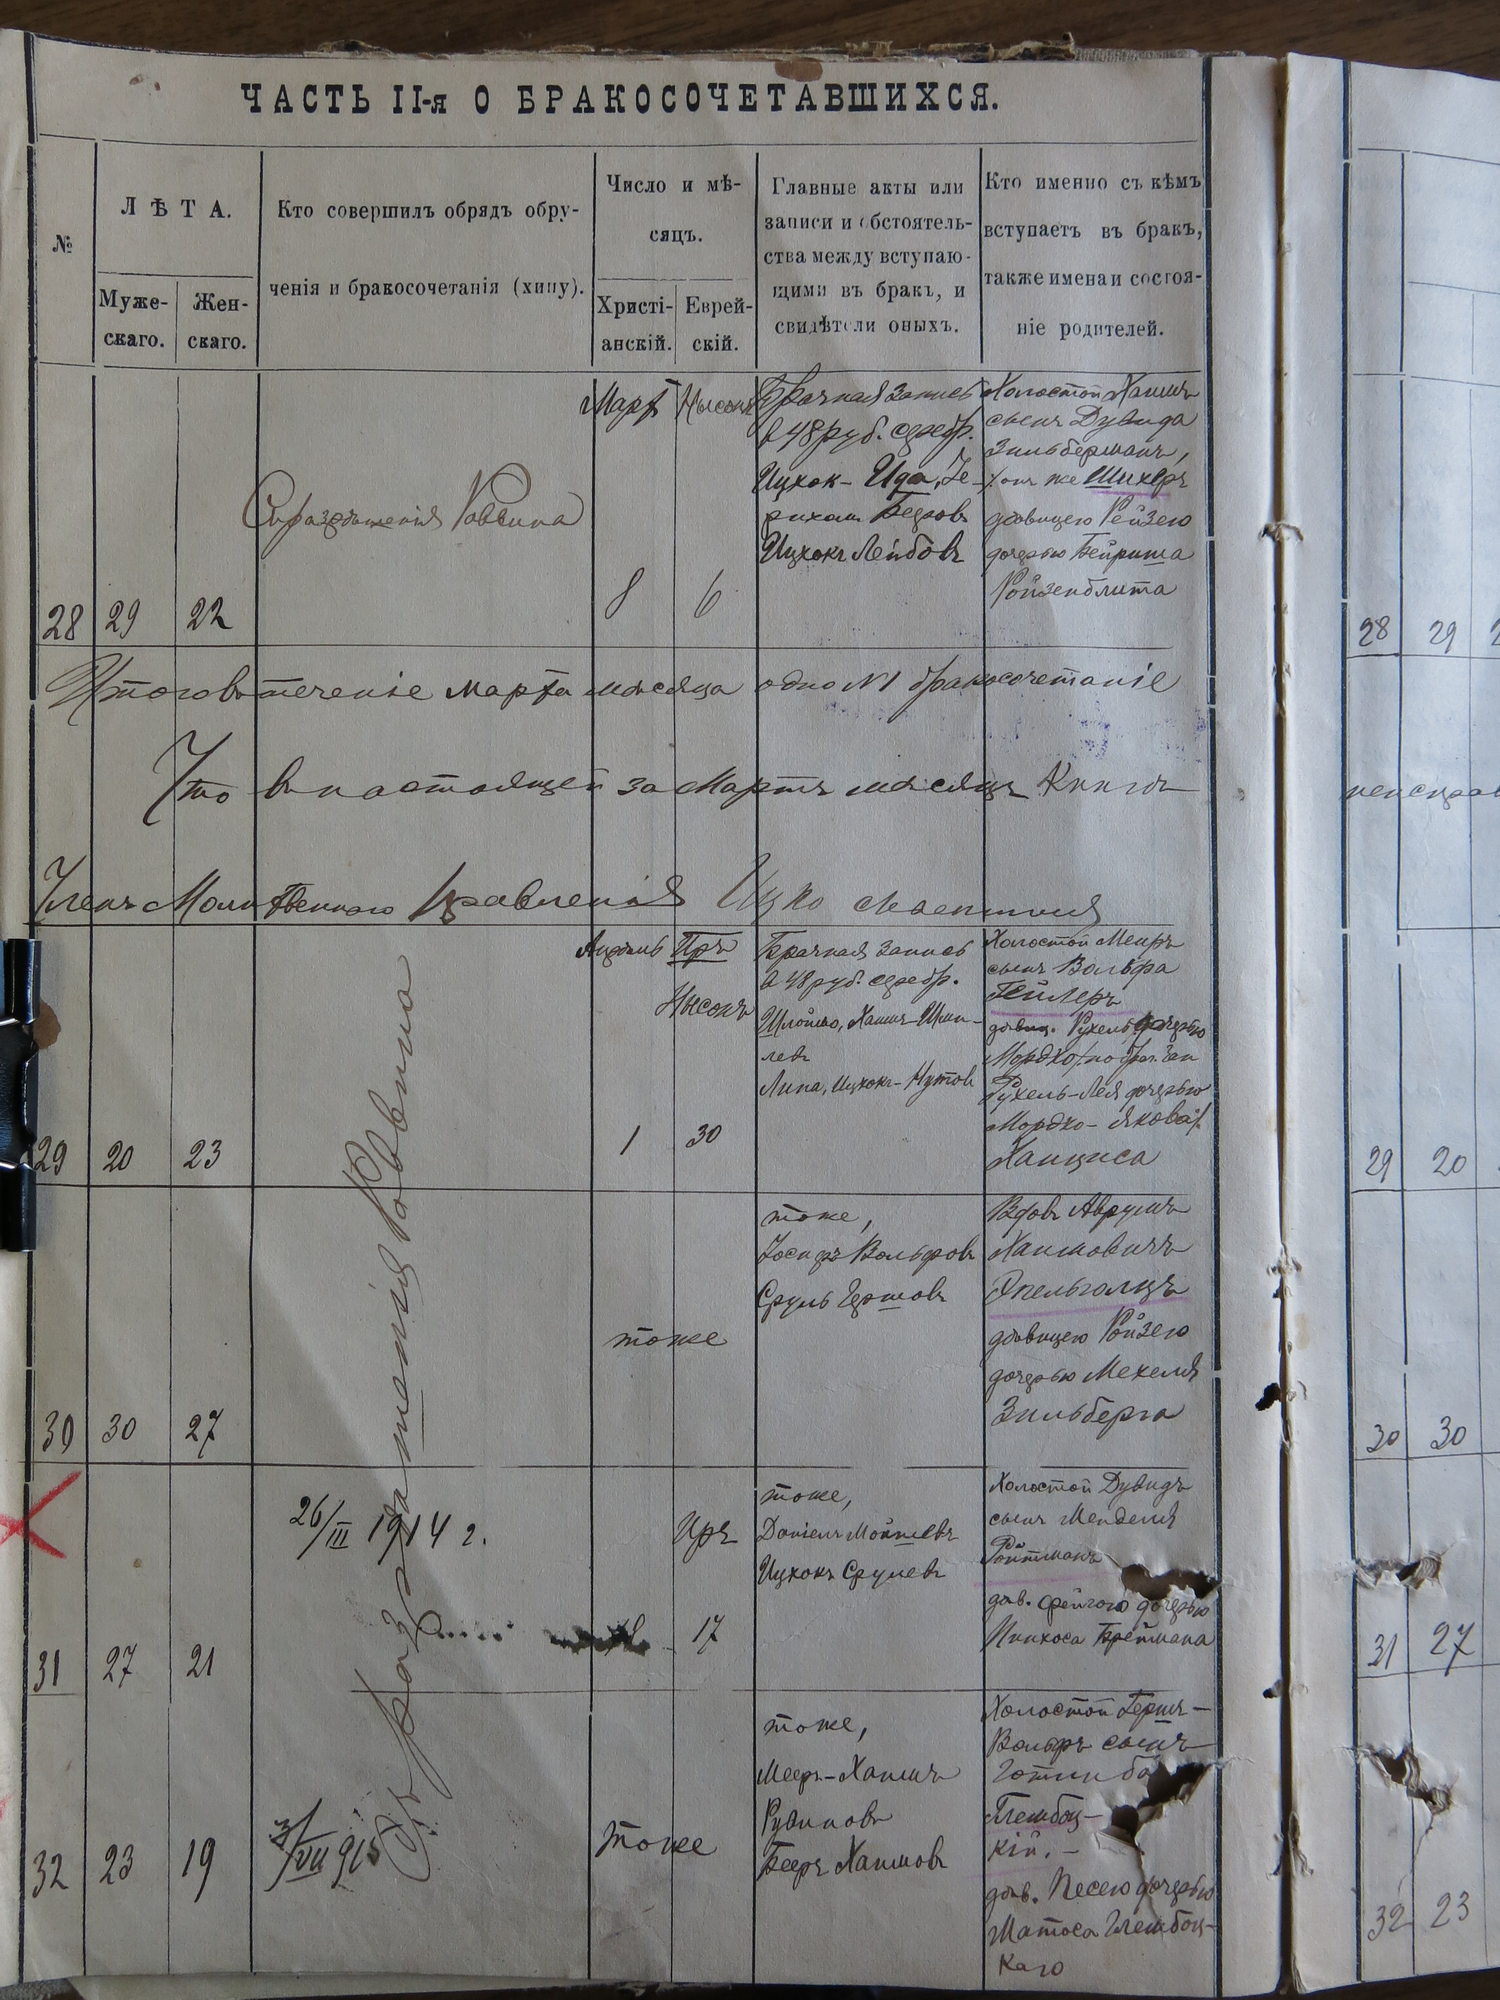 ЧАСТЬ II-я О БРАКОСОЧЕТАВШИХСЯ.
№
ЛѢТА.
Муже-
скаго.
Жен-
скаго.
Кто совершилъ обрядъ обру-
ченія и бракосочетанія (хипу).
Число и мѣ-
сяцъ.
Христі-
анскій.
Еврей-
скій.
Главные акты или
записи и обстоятель-
ства между вступаю-
щими въ бракъ, и
свидѣтели оныхъ.
Кто именно съ кѣмъ
вступаетъ въ бракъ,
также имена и состоя-
ніе родителей.
28
29
22
Съ разрѣшенія Раввина
Мартъ
8
Нысонъ
6
Брачная запись
в 48 руб. серебр.
Ицхок-Ида, Ге-
рихам Беров
Ицхокъ Лейбовъ
Холостой Хаимъ
сынъ Дувида
Зильберманъ,
онъ же Шихеръ
дѣвицею Рейзею
дочерью Бейриша
Ройзенблита
Итого въ теченіе марта мѣсяца одно №1 бракосочетаніе
Что в настоящей за Мартъ мѣсяцъ Книгѣ
Членъ Молитвеннаго Правленія Ицко
29
20
23
Апрѣль
1
Иръ
Нысонъ
30
Брачная запись
в 48 руб. серебр.
Шлоймо, Хаимъ Шми-
левъ
Липа, Ицхокъ-Нутов
Холостой Меиръ
сынъ Вольфа
Гейлеръ
дѣвиц. Рухель дочерью
Мордко/по бра. зап
Рухель-Лея дочерью
Мордко-Якова/
Ханциса
30
30
27
тоже
тоже,
Іосифъ Вольфовъ
Сруль Гершовъ
Вдовъ Аврумъ
Хаимовичъ
Эпельгольцъ
дѣвицею Ройзею
дочерью Мехеля
Зильберга
31
27
21
26/III 1914 г.
Иръ
17
тоже,
Даніелъ Мойшевъ
Ицхокъ Срулевъ
Холостой Дувидъ
сынъ Менделя
Ройтманъ
дѣв. Фейгою дочерью
Пинхоса Бреймана
32
23
19
3/VII 915
Съ разрѣшенія Раввина
тоже
тоже,
Мееръ-Хаимъ
Рувиновъ
Бееръ Хаимовъ
Холостой Гершъ-
Вольфъ сынъ
Готлиба
Глембоц-
кій.-
дѣв. Песею дочерью
Матоса Глембоц-
каго
28
29
29
20
30
30
31
27
32
23